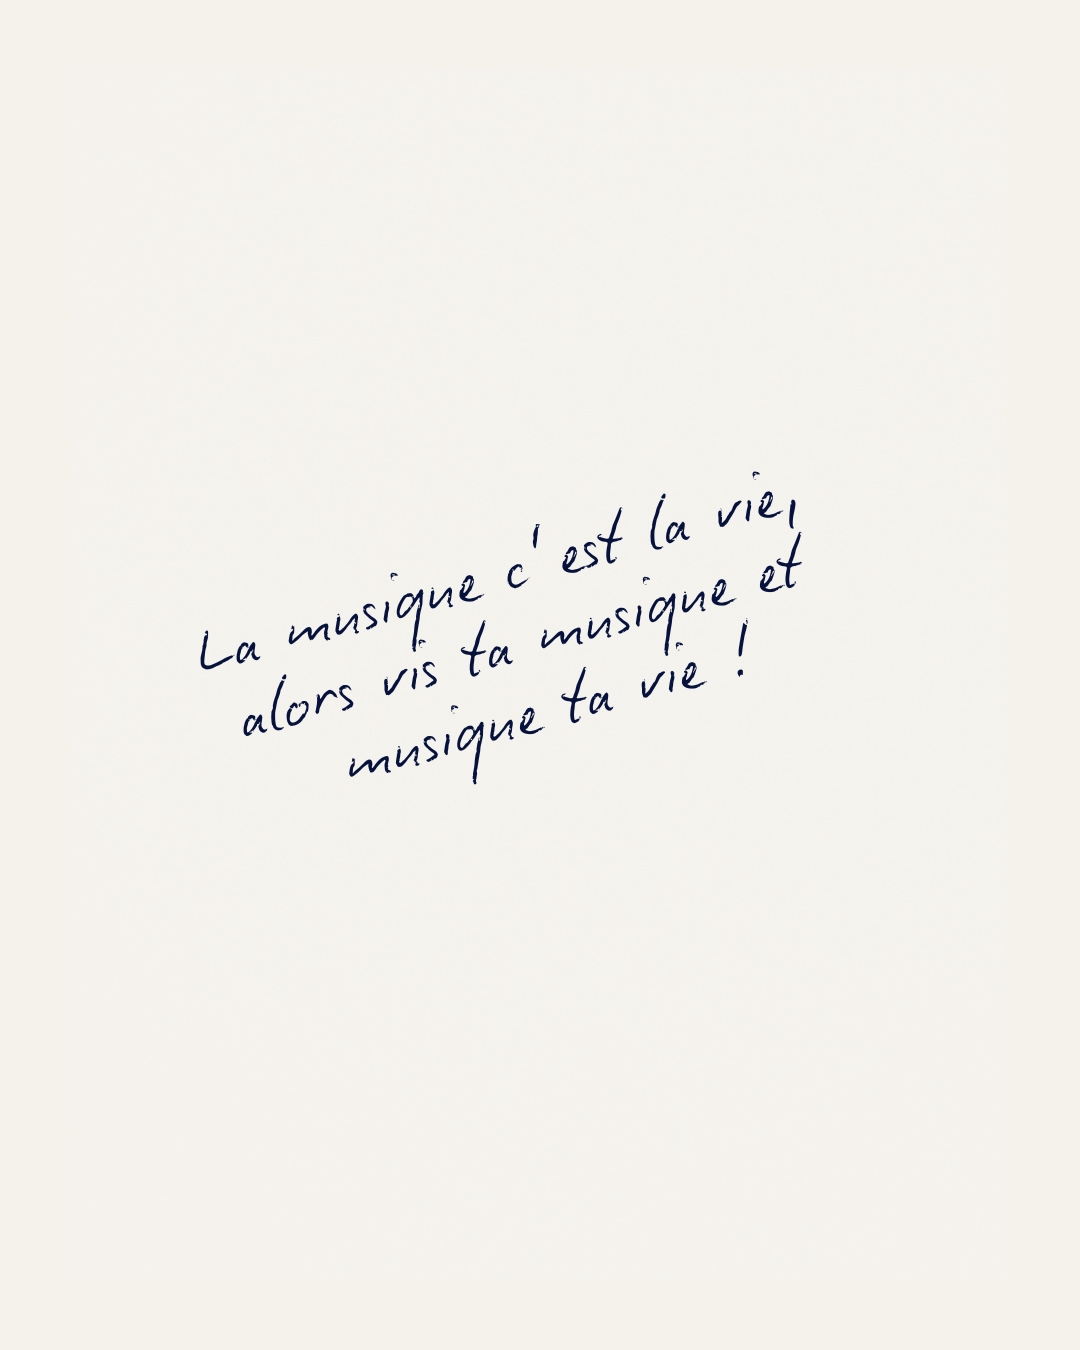 La musique c'est la vie,
alors vis ta musique et
musique ta vie !